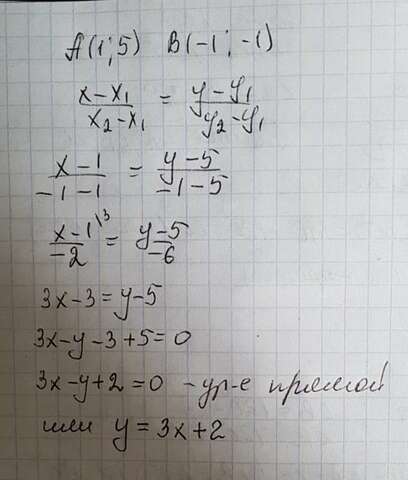 A(1; 5) B(-1; -1)
x-x₁/x₂-x₁ = y-y₁/y₂-y₁
x-1/-1-1 = y-5/-1-5
x-1\³/-2 = y-5/-6
3x-3=y-5
3x-y-3+5=0
3x-y+2=0 - ур-е прямой
или y=3x+2